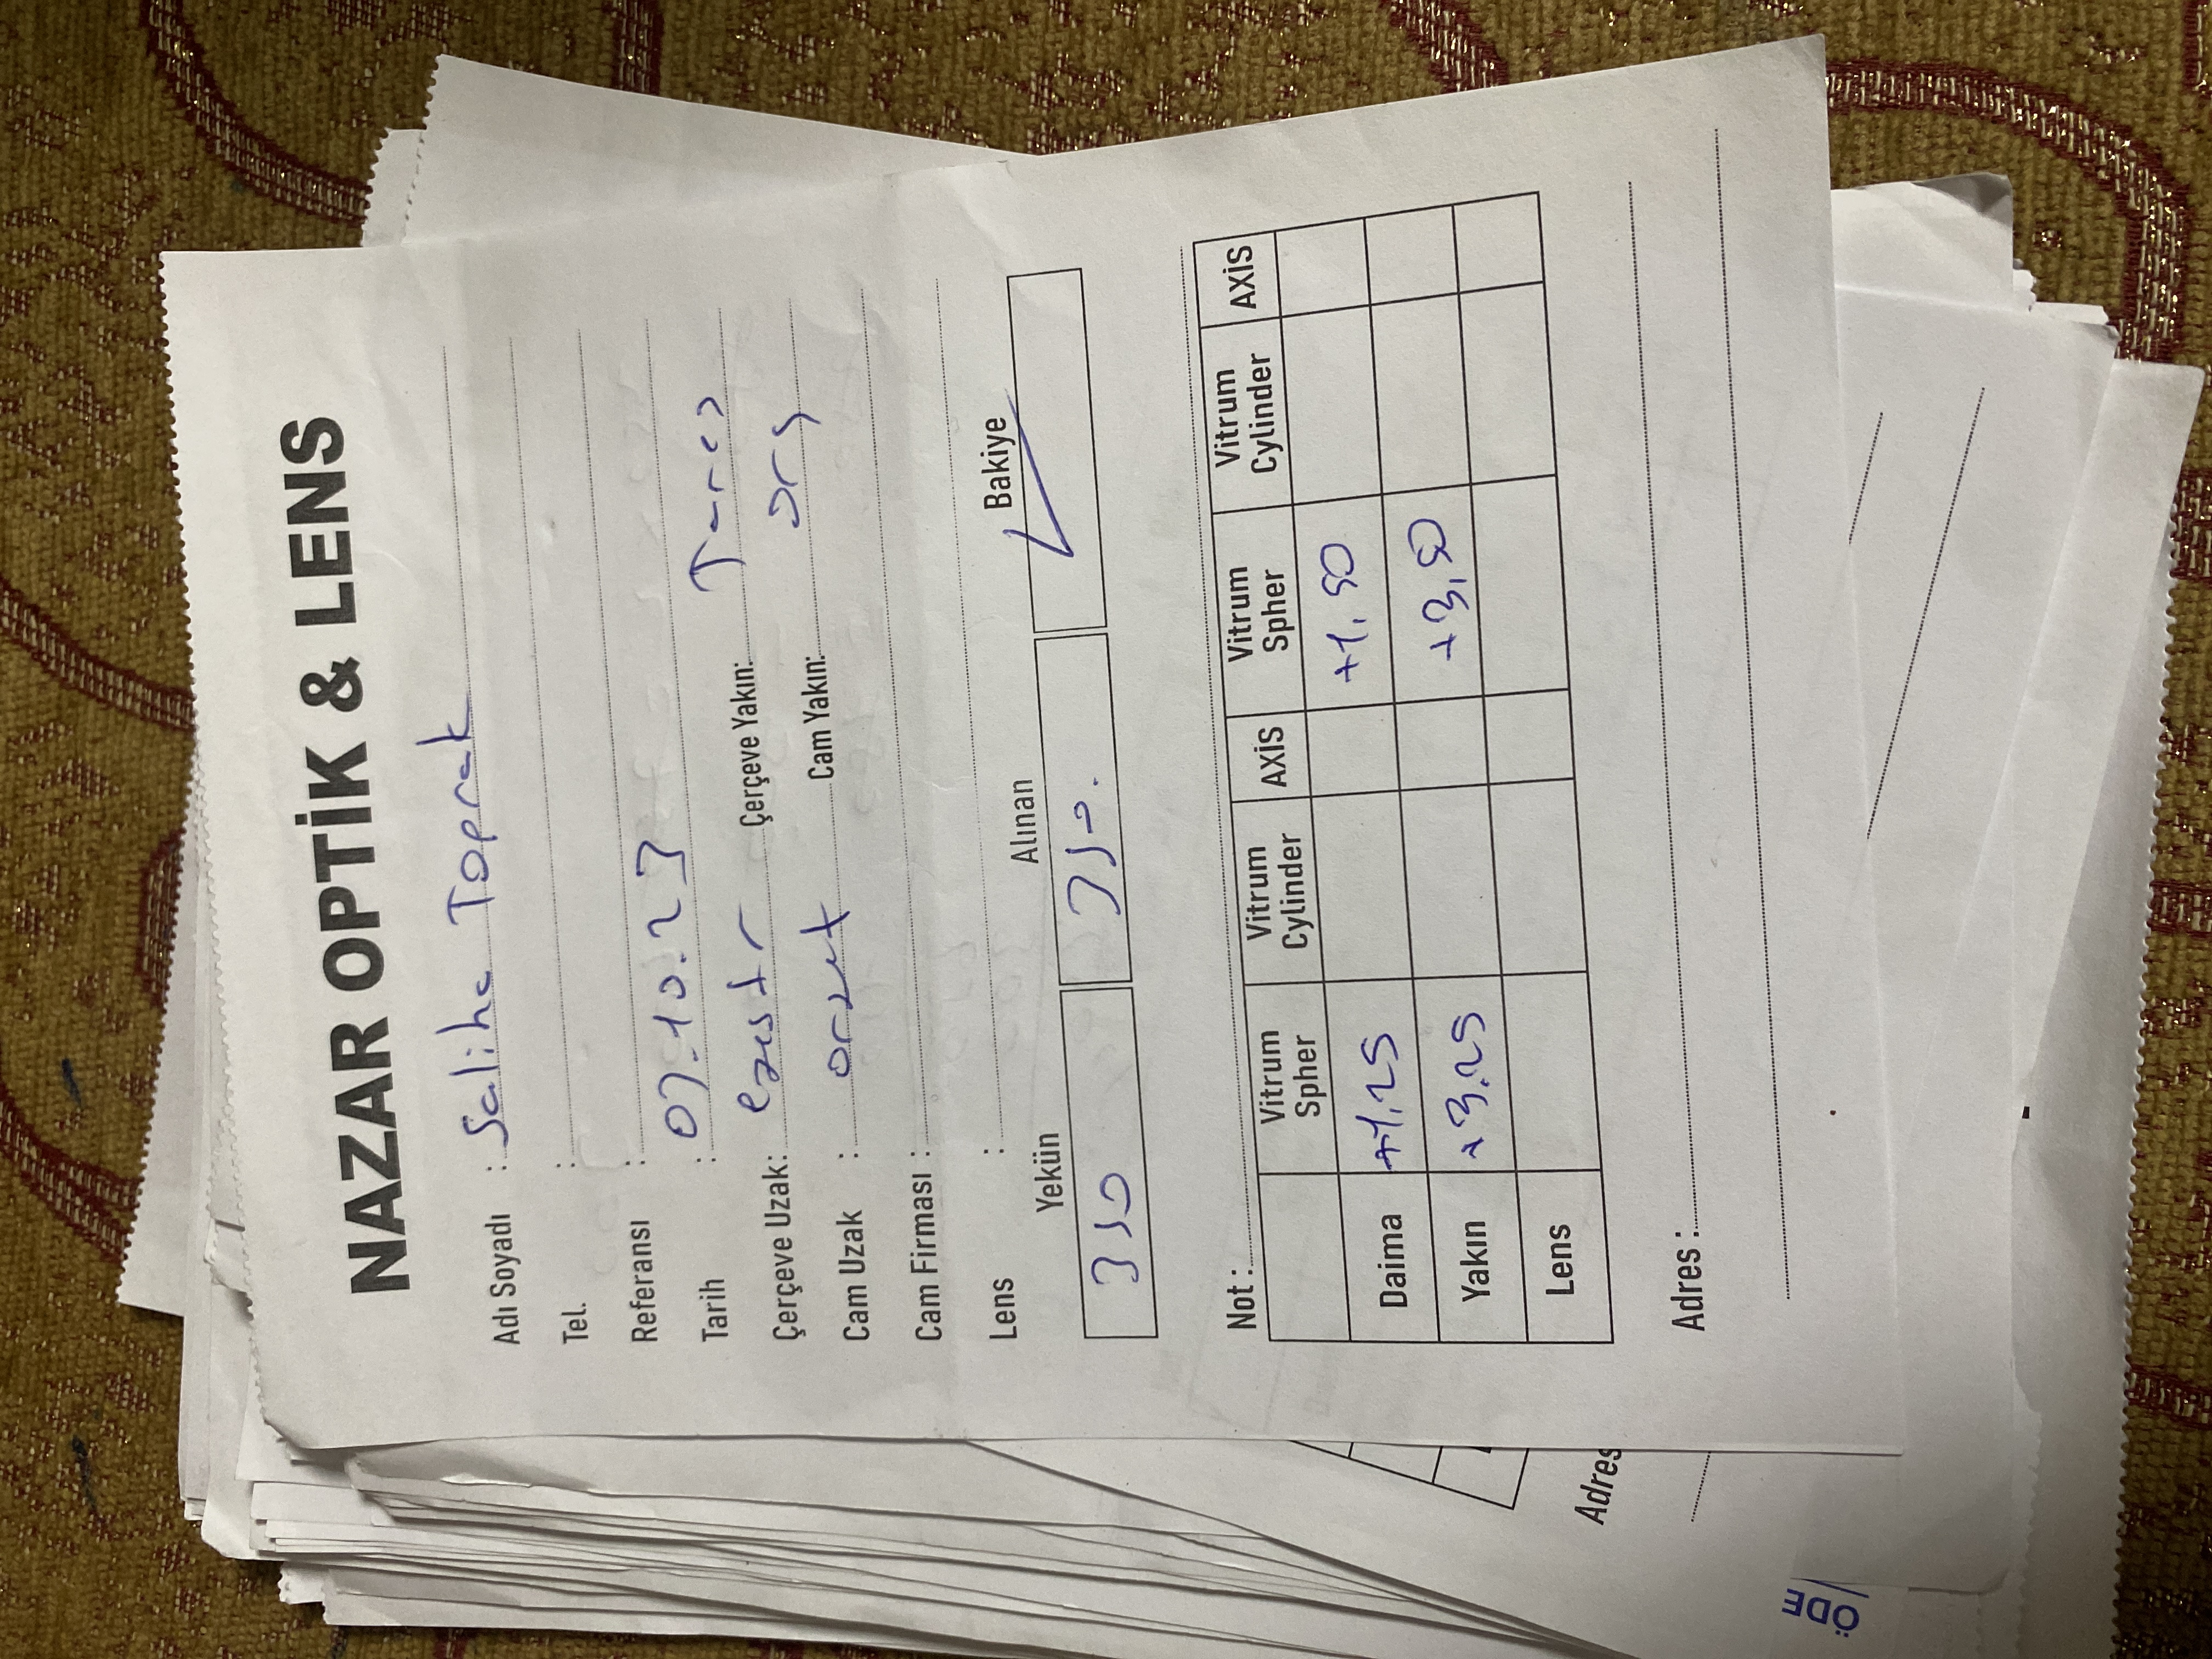 NAZAR OPTİK & LENS
Adı Soyadı : Saliha Toprak
Tel. :
Referansı :
Tarih : 07.10.23
Çerçeve Uzak: Çerçeve Yakın:
Cam Uzak : Cam Yakın:
Cam Firması :
Lens :
Yekün Alınan Bakiye
350 350.
Not :
Vitrum Spher Vitrum Cylinder AXİS Vitrum Spher Vitrum Cylinder AXİS
Daima +1,25 +1,50
Yakın +3.25 +3,50
Lens
Adres :
Adres
ÖDE